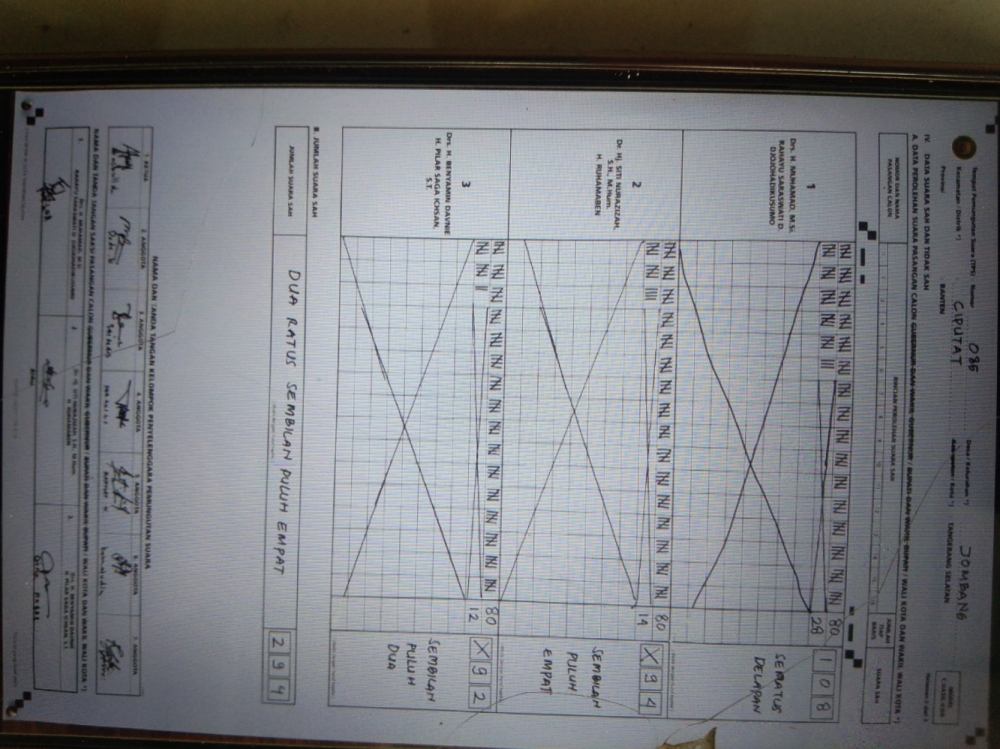 Tempat Pemungutan Suara (TPS) : Nomor 085 Desa / Kelurahan *) : JOMBANG
Kecamatan / Distrik *) : CIPUTAT Kabupaten / Kota *) : TANGERANG SELATAN
Provinsi : BANTEN
IV. DATA SUARA SAH DAN TIDAK SAH
A. DATA PEROLEHAN SUARA PASANGAN CALON GUBERNUR DAN WAKIL GUBERNUR / BUPATI DAN WAKIL BUPATI / WALI KOTA DAN WAKIL WALI KOTA *)
NOMOR DAN NAMA PASANGAN CALON
RINCIAN PEROLEHAN SUARA SAH
JUMLAH TIAP BARIS
SUARA SAH
1
Drs. H. MUHAMAD, M.Si.
RAHAYU SARASWATI D.
DJOJOHADIKUSUMO
80
28
108
SERATUS
DELAPAN
2
Dr. Hj. SITI NURAZIZAH,
S.H., M.Hum.
H. RUHAMABEN
80
14
X94
SEMBILAN
PULUH
EMPAT
3
Drs. H. BENYAMIN DAVNIE
H. PILAR SAGA ICHSAN,
S.T.
80
12
X92
SEMBILAN
PULUH
DUA
B. JUMLAH SUARA SAH
JUMLAH SUARA SAH
DUA RATUS SEMBILAN PULUH EMPAT
294
NAMA DAN TANDA TANGAN KELOMPOK PENYELENGGARA PEMUNGUTAN SUARA
1. KETUA 2. ANGGOTA 3. ANGGOTA 4. ANGGOTA 5. ANGGOTA 6. ANGGOTA 7. ANGGOTA
NAMA DAN TANDA TANGAN SAKSI PASANGAN CALON GUBERNUR DAN WAKIL GUBERNUR / BUPATI DAN WAKIL BUPATI / WALI KOTA DAN WAKIL WALI KOTA *)
1. Drs. H. MUHAMAD, M.Si.
RAHAYU SARASWATI D. DJOJOHADIKUSUMO
2. Dr. Hj. SITI NURAZIZAH, S.H., M.Hum.
H. RUHAMABEN
3. Drs. H. BENYAMIN DAVNIE
H. PILAR SAGA ICHSAN, S.T.